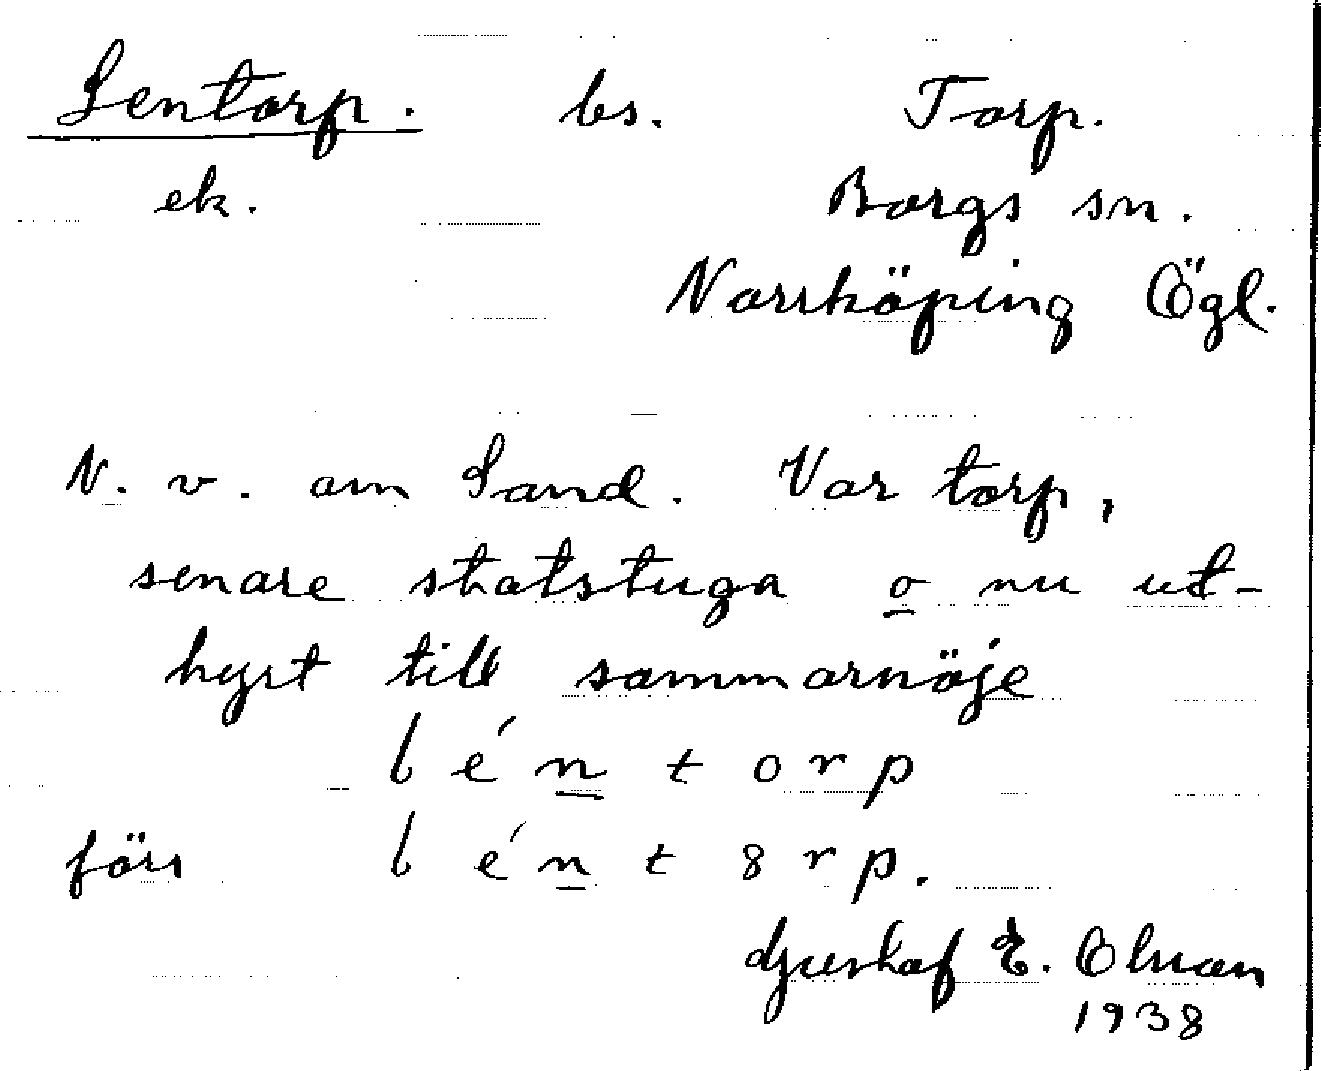 Lentorp. bs. Torp.
ek. Borgs sn.
Norrköping Ögl.
N. v. om Sand. Var torp,
senare statstuga o nu ut-
hyrt till sommarnöje
l é n t o r p
förr l é n t 8 r p.
Gustaf E.
1938